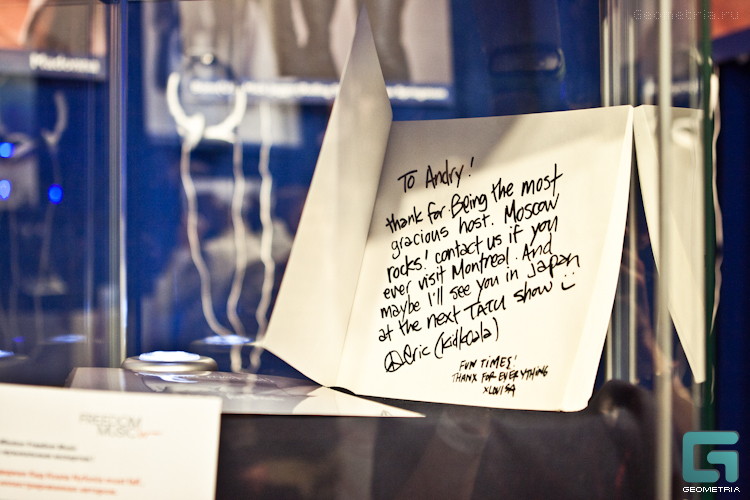 Geometria.ru
Madonna
To Andry!
thank for Being the most
gracious host. Moscow
rocks! contact us if you
ever visit Montreal. And
maybe I'll see you in Japan
at the next TATU show
eric (kidkoala)
FUN TIMES!
THANX FOR EVERYTHING
xLOUISA
FREEDOM
MUSIC
GEOMETRIA